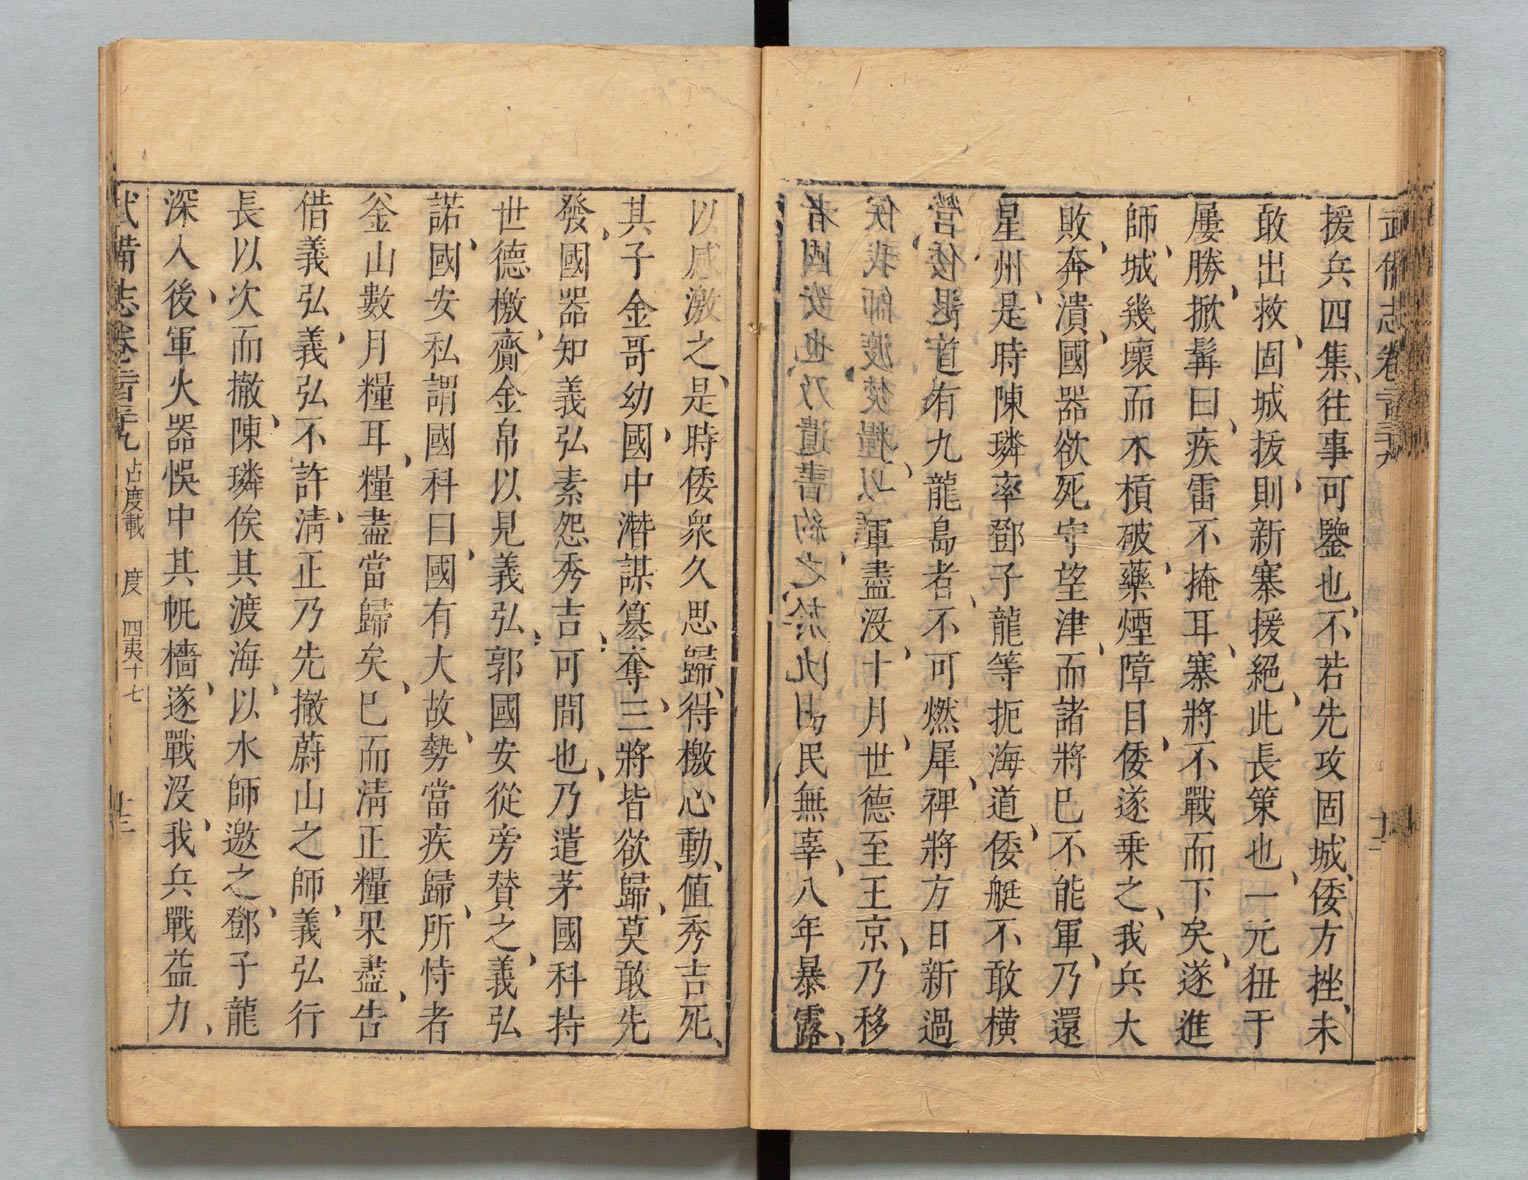 武備志卷二百三十九 十二
援兵四集、往事可鑒也、不若先攻固城、倭方挫、未
敢出救、固城拔、則新寨援絕、此長策也、一元狃于
屢勝、掀髯曰、疾雷不掩耳、寨將不戰而下矣、遂進
師、城幾壞而木槓破、藥煙障目、倭遂乘之、我兵大
敗、奔潰、國器欲死守望津、而諸將已不能軍、乃還
星州、是時陳璘率鄧子龍等扼海道、倭艇不敢橫
營倭退道有九龍島者、不可燃犀、裨將方日新過
俟我師渡焚糧以軍盡没、十月、世德至王京、乃移
者國安也乃遺書約之於九日民無辜、八年暴露、
以感激之、是時倭衆久思歸、得檄心動、值秀吉死、
其子金哥幼、國中潛謀簒奪、三將皆欲歸、莫敢先
發、國器知義弘素怨秀吉、可間也、乃遣茅國科持
世德檄、齎金帛以見義弘、郭國安從旁賛之、義弘
諾、國安私謂國科曰、國有大故、勢當疾歸、所恃者
釜山數月糧耳、糧盡當歸矣、已而淸正糧果盡、告
借義弘、義弘不許、淸正乃先撤蔚山之師、義弘行
長以次而撤、陳璘俟其渡海、以水師邀之、鄧子龍
深入、後軍火器悞中其帆檣、遂戰没、我兵戰益力、
武備志卷二百三十九 占度載 度 四夷十七 十三